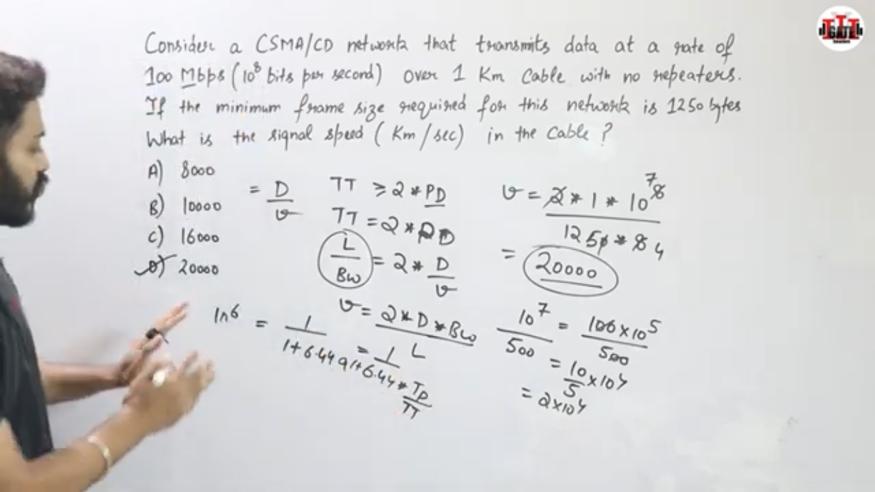 Consider a CSMA/CD network that transmits data at a rate of
100 Mbps (10⁸ bits per second) over 1 Km Cable with no repeaters.
If the minimum frame size required for this network is 1250 bytes
What is the signal speed ( Km/sec) in the cable?
A) 8000
B) 10000
C) 16000
D) 20000
= D/v
TT ≥ 2 * PD
TT = 2 * PD
L/BW = 2 * D/v
v = 2 * D * BW / L
v = 2 * 1 * 10⁷ 8 / 1250 * 8 4
= 20000
= 1 / 1+6.44 a
= 1 / 1+6.44 * Tp/TT
10⁷/500 = 100 x 10⁵/500
= 10/5 x 10⁴
= 2x10⁴
GATE